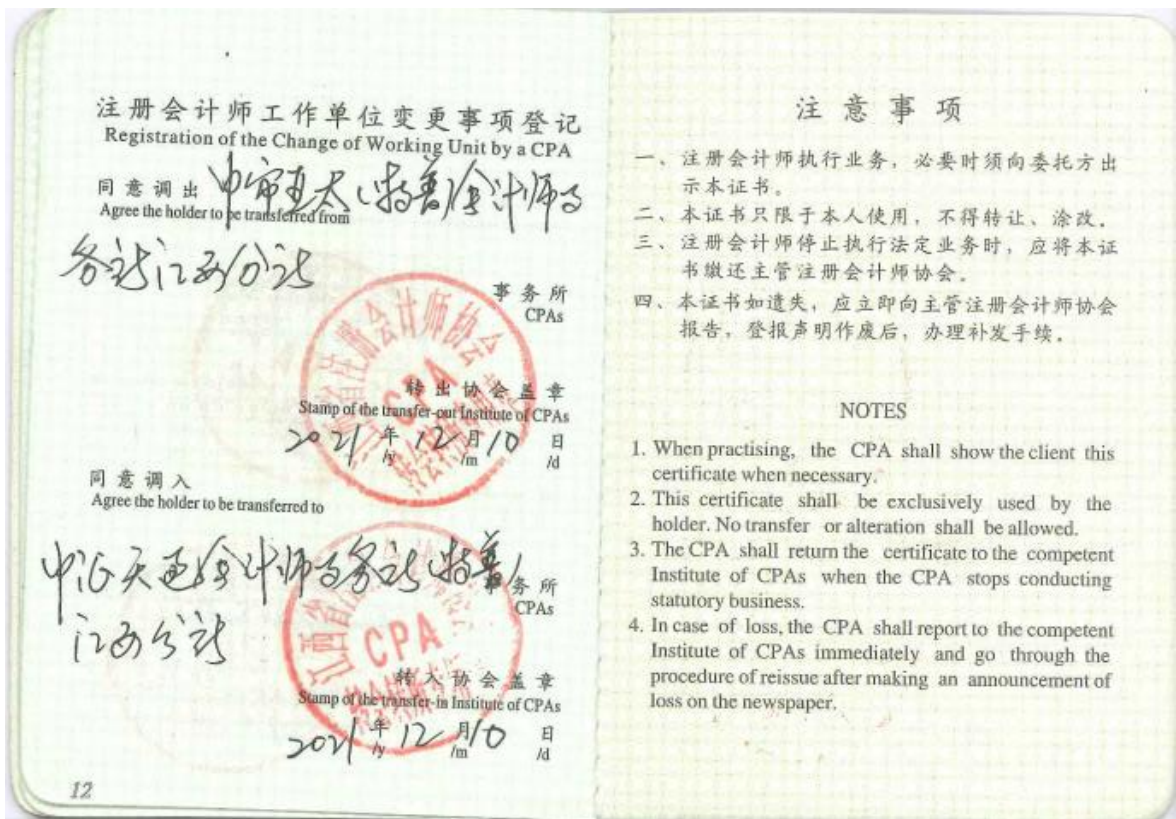 注册会计师工作单位变更事项登记
Registration of the Change of Working Unit by a CPA
同意调出 中审亚太(特普)会计师事
Agree the holder to be transferred from
务所江西分所
事务所
CPAs
江西省注册会计师协会
CPA
转出协会盖章
Stamp of the transfer-out Institute of CPAs
2021年12月10日
/y /m /d
同意调入
Agree the holder to be transferred to
中证天通会计师事务所(特普)
事务所
CPAs
江西分所
江西省
CPA
转入协会盖章
Stamp of the transfer-in Institute of CPAs
2021年12月10日
/y /m /d
12
注意事项
一、注册会计师执行业务，必要时须向委托方出
示本证书。
二、本证书只限于本人使用，不得转让、涂改。
三、注册会计师停止执行法定业务时，应将本证
书缴还主管注册会计师协会。
四、本证书如遗失，应立即向主管注册会计师协会
报告，登报声明作废后，办理补发手续。
NOTES
1. When practising, the CPA shall show the client this
certificate when necessary.
2. This certificate shall be exclusively used by the
holder. No transfer or alteration shall be allowed.
3. The CPA shall return the certificate to the competent
Institute of CPAs when the CPA stops conducting
statutory business.
4. In case of loss, the CPA shall report to the competent
Institute of CPAs immediately and go through the
procedure of reissue after making an announcement of
loss on the newspaper.